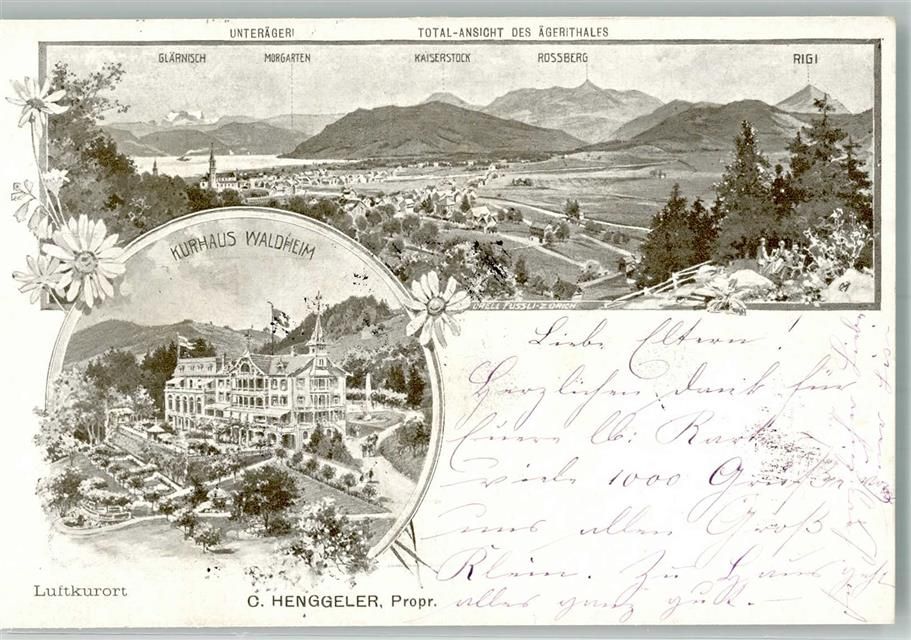 UNTERÄGERI TOTAL-ANSICHT DES ÄGERITHALES
GLÄRNISCH MORGARTEN KAISERSTOCK ROSSBERG RIGI
KURHAUS WALDHEIM
ORELL FÜSSLI-ZÜRICH
Liebe Eltern!
Herzlichen Dank für
Euere lb: Karte
viele 1000 Grüsse von
uns allen Groß
Klein. Zu Haus geht
alles ganz gut. –
Luftkurort
C. HENGGELER, Propr.